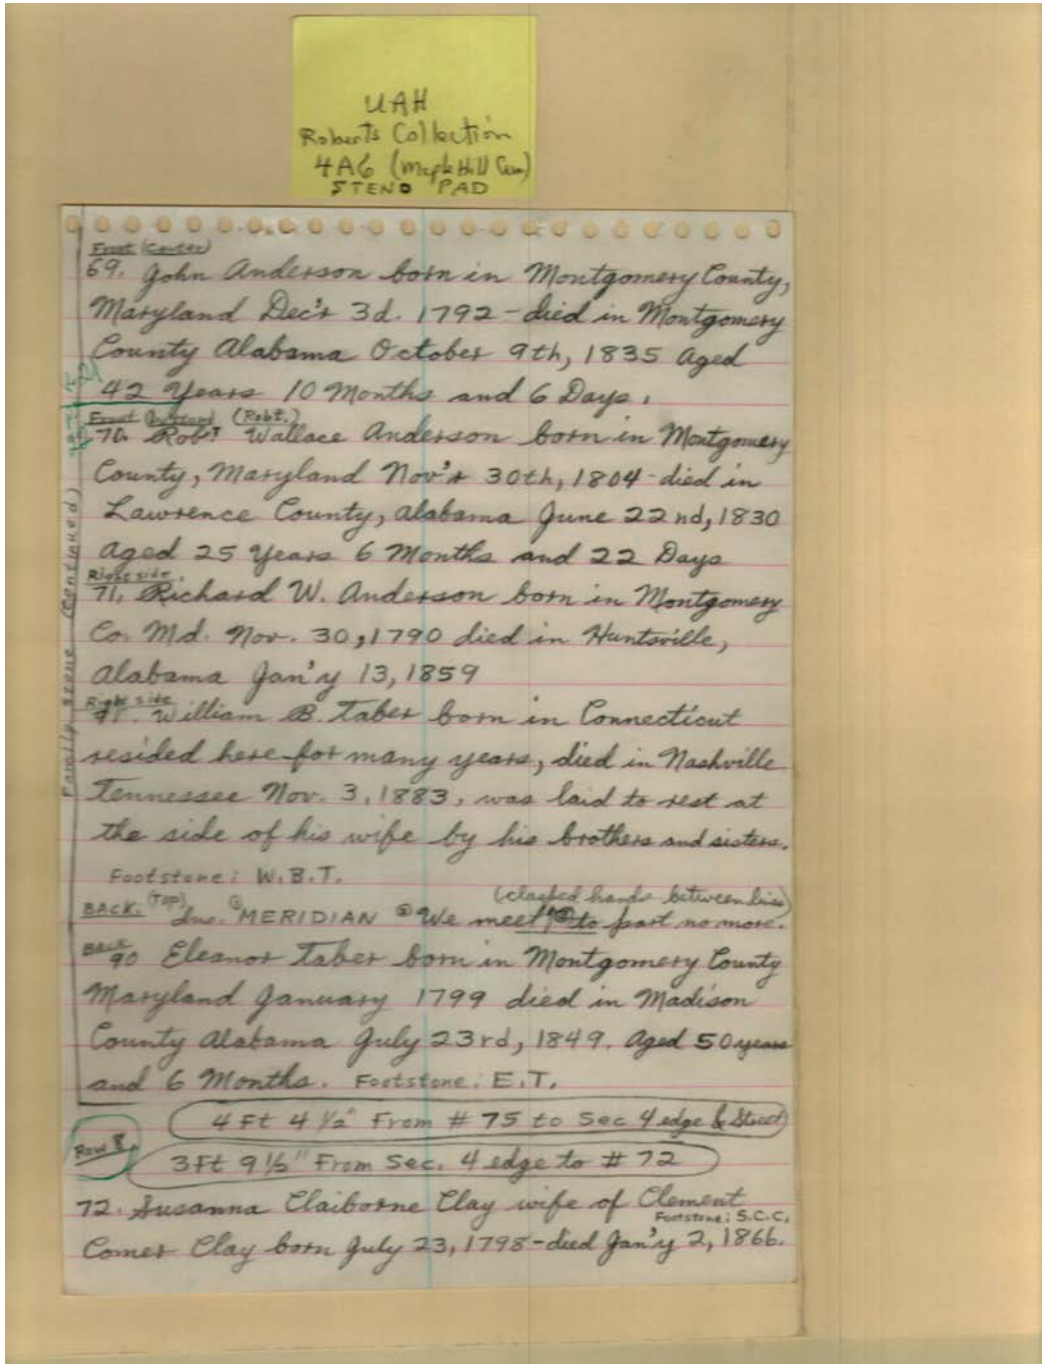 UAH
Roberts Collection
4A6 (Maple Hill Cem)
STENO PAD
Front (Center)
69. John Anderson born in Montgomery County,
Maryland Dec'r 3d. 1792 - died in Montgomery
County Alabama October 9th, 1835 Aged
42 Years 10 Months and 6 Days.
Front (bottom) (Robt.)
70. Robt Wallace Anderson born in Montgomery
County, Maryland Nov'r 30th, 1804 - died in
Lawrence County, Alabama June 22nd, 1830
Aged 25 Years 6 Months and 22 Days
Right side.
71. Richard W. Anderson born in Montgomery
Co. Md. Nov. 30, 1790 died in Huntsville,
Alabama Jan'y 13, 1859
Right side
William B. Taber born in Connecticut
resided here for many years, died in Nashville
Tennessee Nov. 3, 1883, was laid to rest at
the side of his wife by his brothers and sisters.
Footstone: W.B.T.
(clasped hands between lines)
BACK: (Top) Inc. ① MERIDIAN ② We meet to part no more.
Back
90 Eleanor Taber born in Montgomery County
Maryland January 1799 died in Madison
County Alabama July 23rd, 1849. Aged 50 years
and 6 Months. Footstone: E.T.
Family stone (continued)
4 Ft 4 1/2" From # 75 to Sec 4 edge & Street
Row 8.
3Ft 9 1/2" From Sec. 4 edge to # 72
72. Susanna Claiborne Clay wife of Clement
Footstone: S.C.C.
Comer Clay born July 23, 1798 - died Jan'y 2, 1866.